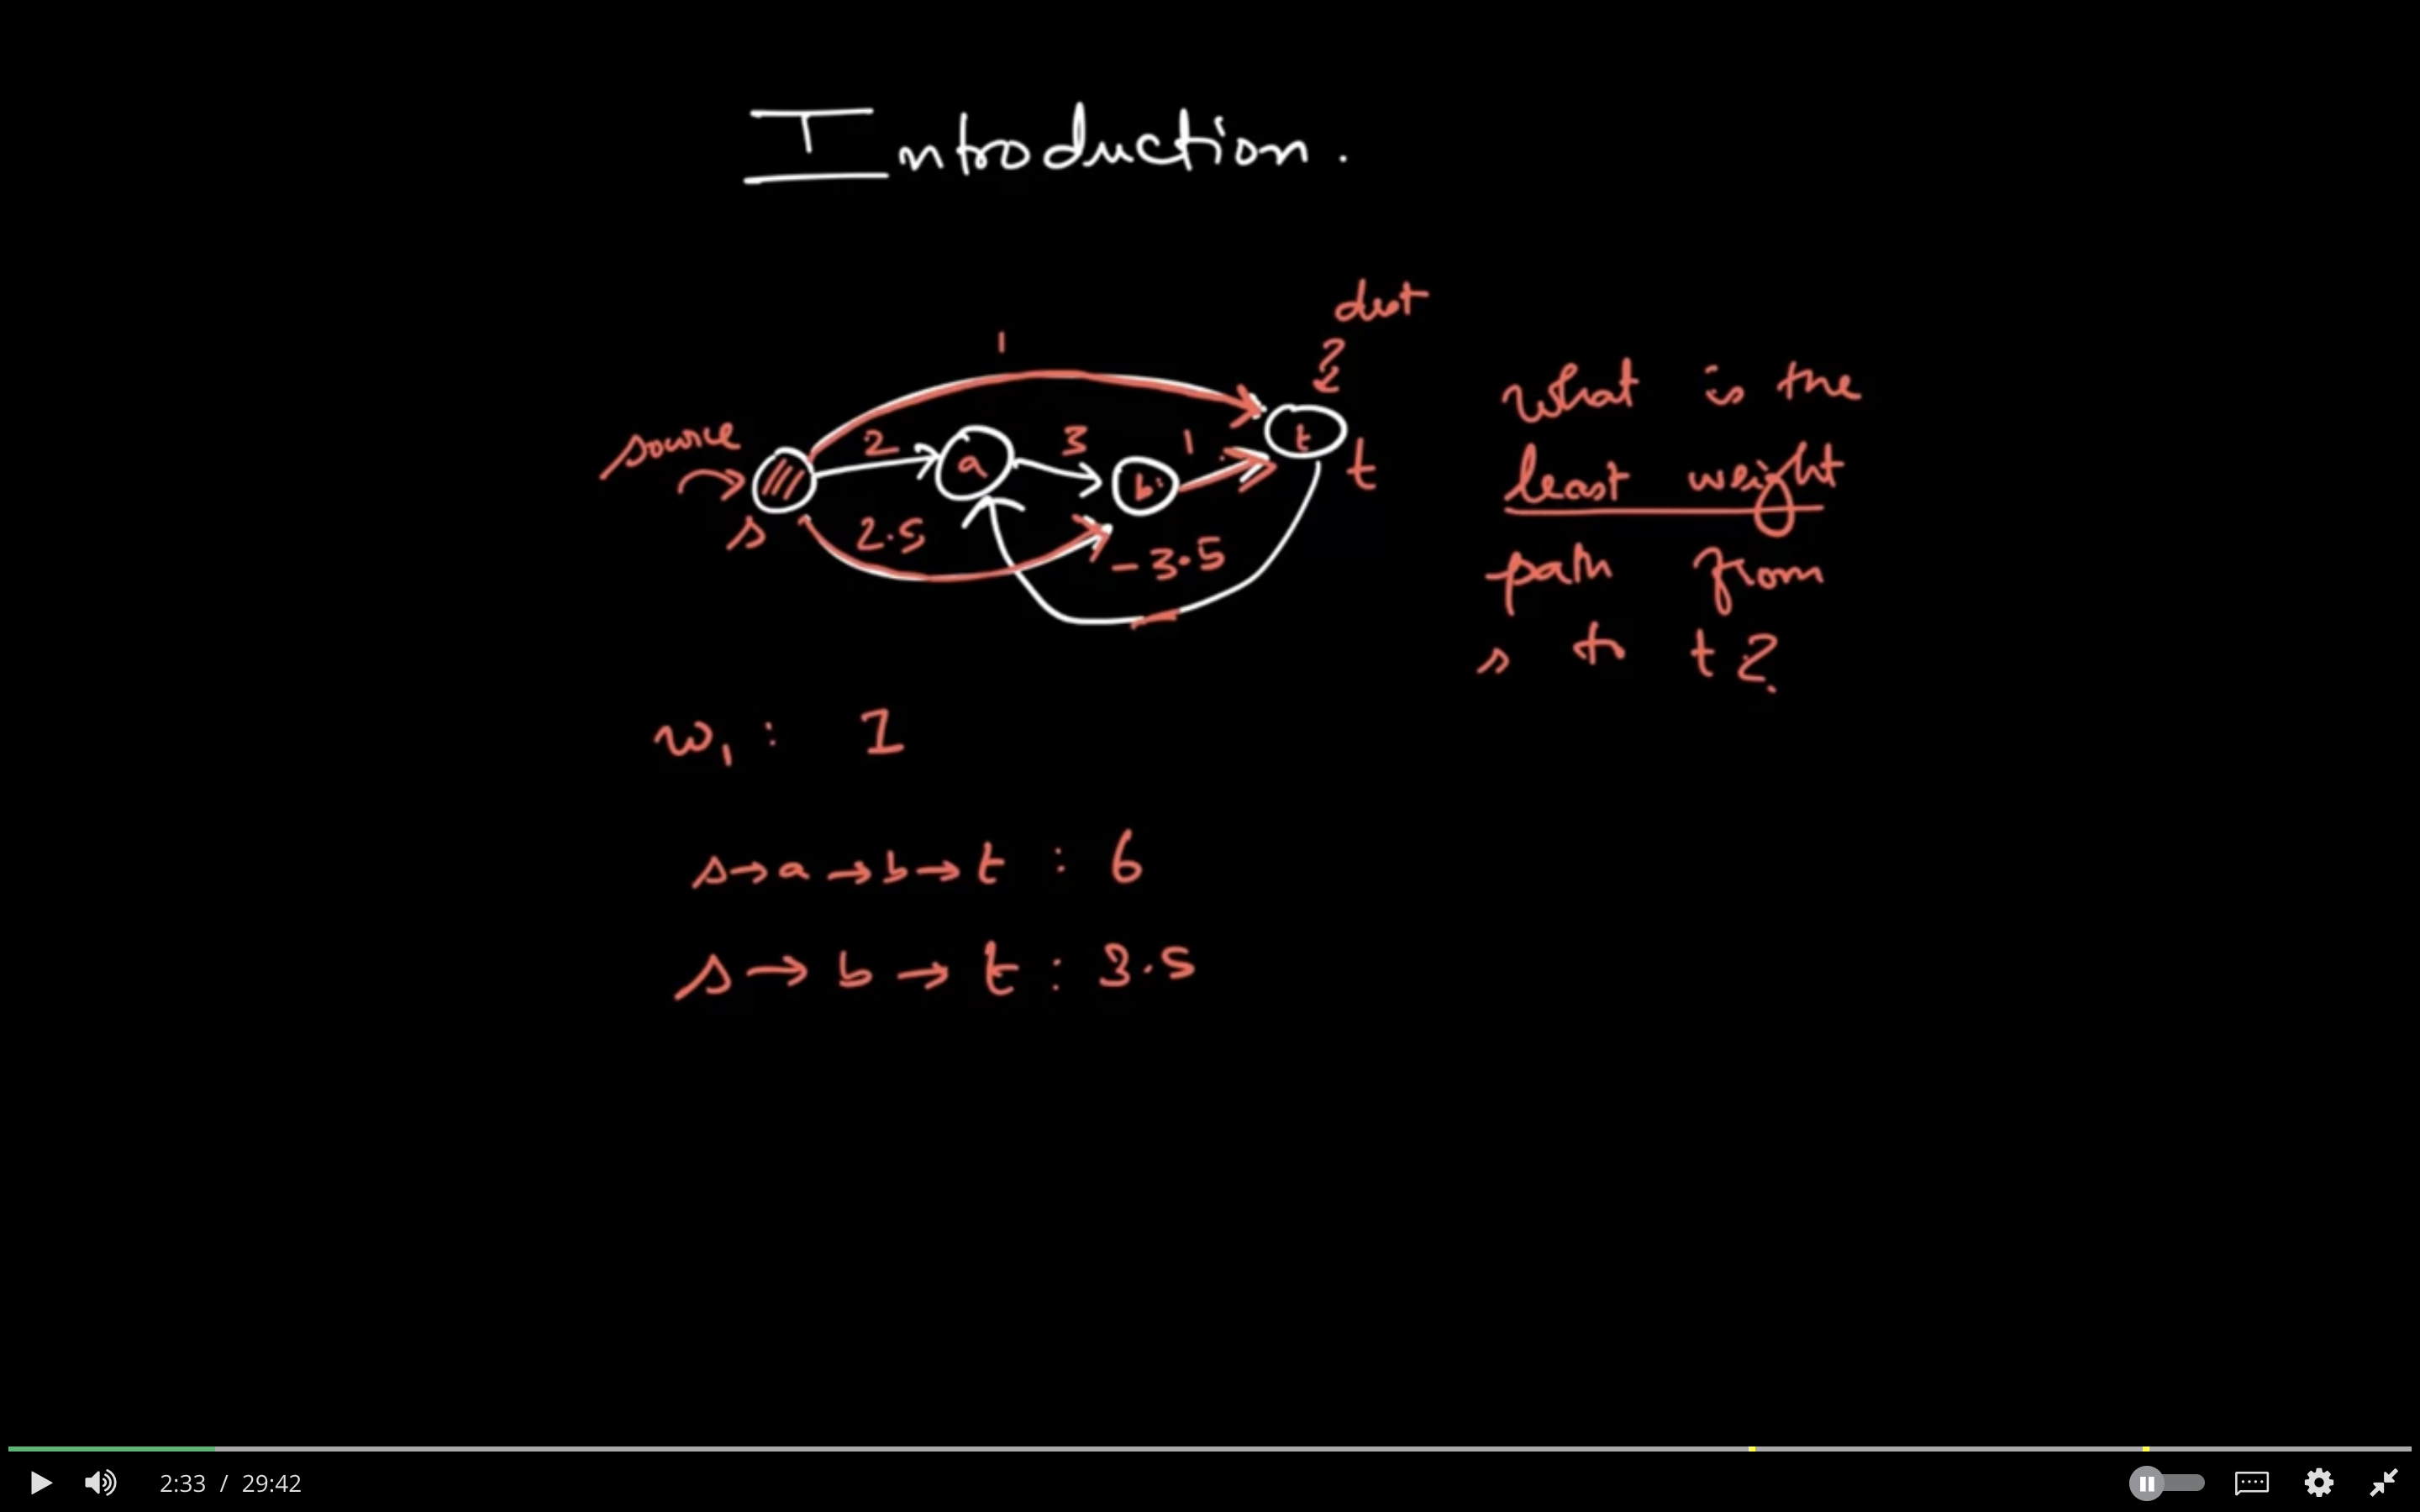 Introduction.
dest
1
source
2
a
3
1
t
b
t
s
2.5
-3.5
What is the
least weight
path from
s to t?
w1 : 1
s→a→b→t : 6
s→b→t : 3.5
2:33 / 29:42